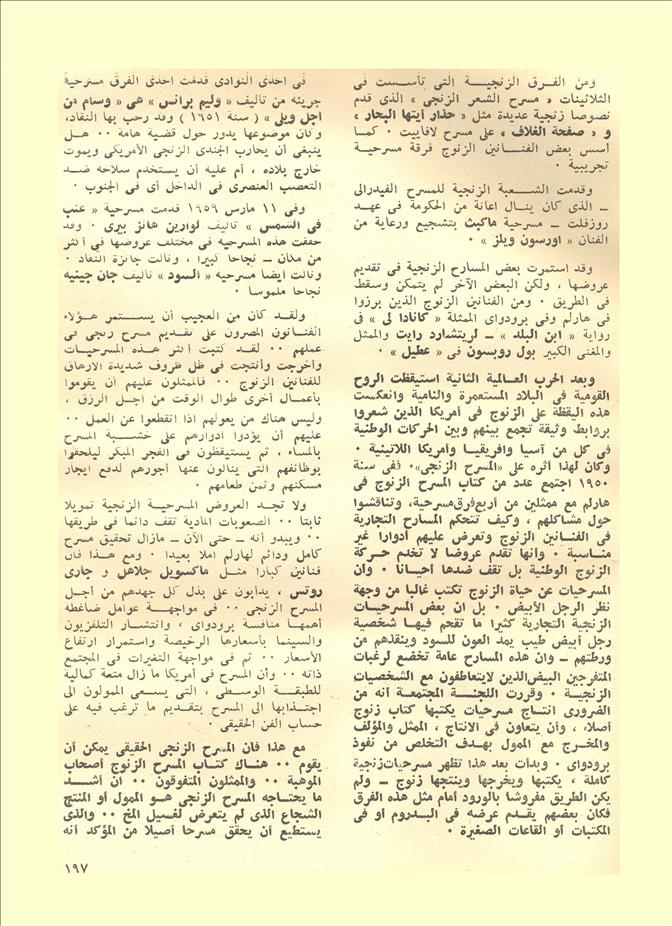 ومن الفرق الزنجيـــة التى تأسست فى
الثلاثينات « مسرح الشعر الزنجى » الذى قدم
نصوصا زنجية عديدة مثل « حذار أيتها البحار »
و « صفحة الغلاف » على مسرح لافاييت · كمـا
أسس بعض الفنــانين الزنوج فرقة مسرحيـة
تجريبية ·
وقدمت الشــعبة الزنجية للمسرح الفيدرالى
ــ الذى كان ينــال اعانة من الحكومة فى عهـد
روزفلت ــ مسرحية ماكبث بتشجيع ورعاية من
الفنان « اورسون ويلز » ·
وقد استمرت بعض المسارح الزنجية فى تقديم
عروضها ، ولكن البعض الآخر لم يتمكن وسقط
فى الطريق · ومن الفنانين الزنوج الذين برزوا
فى هارلم وفى برودواى الممثلة « كانادا لى » فى
رواية « ابن البلد » ــ لريتشارد رايت والممثل
والمغنى الكبير بول روبسون فى « عطيل » ·
وبعد الحرب العــالمية الثانية استيقظت الروح
القومية فى البلاد المستعمرة والنامية وانعكست
هذه اليقظة على الزنوج فى أمريكا الذين شعروا
بروابط وثيقة تجمع بينهم وبين الحركات الوطنية
فى كل من آسيا وافريقيـا وأمريكا اللاتينية ·
وكان لهذا أثره على «المسرح الزنجى»· ففى سنة
١٩٥٠ اجتمع عدد من كتاب المسرح الزنوج فى
هارلم مع ممثلين من أربع فرق مسرحية، وتناقشوا
حول مشاكلهم ، وكيف تتحكم المسارح التجارية
فى الفنــانين الزنوج وتعرض عليهم أدوارا غير
مناسبة · وأنها تقدم عروضا لا تخدم حـركة
الزنوج الوطنية بل تقف ضدها أحيـانا · وأن
المسرحيات عن حياة الزنوج تكتب غالبا من وجهة
نظر الرجل الأبيض · بل ان بعض المسرحيـات
الزنجية التجارية كثيرا ما تقحم فيهـا شخصية
رجل أبيض طيب يمد العون للسود وينقذهم من
ورطتهم ــ وان هذه المسارح عامة تخضع لرغبات
المتفرجين البيض الذين لايتعاطفون مع الشخصيات
الزنجيــة · وقررت اللجنــة المجتمعـة أنه من
الضرورى انتــاج مسرحيات يكتبها كتاب زنوج
أصلاء ، وأن يتعاون فى الانتاج ، الممثل والمؤلف
والمخرج مع الممول بهـدف التخلص من نفوذ
برودواى · وبدأت بعد هذا تظهر مسرحيات زنجية
كاملة ، يكتبها ويخرجها وينتجها زنوج ــ ولم
يكن الطريق مفروشا بالورود أمام مثل هذه الفرق
فكان بعضهم يقــدم عرضه فى البـدروم أو فى
المكتبات أو القاعات الصغيرة ·
فى احدى النوادى قدمت احدى الفرق مسرحية
جريئه من تأليف « وليم برانس » هى « وسام من
أجل ويلى » ( سنة ١٦٥١ ) وقد رحب بها النقاد،
وكان موضوعها يدور حول قضية هامة ·· هـل
ينبغى أن يحارب الجندى الزنجى الأمريكى ويموت
خارج بلاده ، أم عليه أن يستخدم سلاحه ضـد
التعصب العنصرى فى الداخل أى فى الجنوب ·
وفى ١١ مارس ١٩٥٩ قدمت مسرحية « عنب
فى الشمس » تأليف لوارين هانز بيرى · وقد
حققت هذه المسرحيه فى مختلف عروضها فى أكثر
من مكـان ــ نجاحا كبيرا ، ونالت جائزة النقاد ·
ونالت أيضا مسرحيه « السود » تأليف جان جينيه
نجاحا ملموسا ·
ولقـد كان من العجيب أن يســتمر هـؤلاء
الفنـانون المصرون على تقـديم مسرح زنجى فى
عملهم ·· لقـد كتبت أكثر هـذه المسرحيـات
وأخرجت وأنتجت فى ظل ظروف شديدة الارهاق
للفنانين الزنوج ·· فالممثلون عليهم أن يقوموا
بأعمـال أخرى طوال الوقت من أجـل الرزق ،
وليس هناك من يعولهم اذا انقطعوا عن العمل ··
عليهم أن يؤدوا أدوارهم على خشـبة المسرح
بالمساء ، ثم يستيقظون فى الفجر المبكر ليلحقوا
بوظائفهم التى ينالون عنها أجورهم لدفع ايجار
مسكنهم وثمن طعامهم ·
ولا تجـد العروض المسرحيـة الزنجية تمويلا
ثابتا ·· الصعوبات المادية تقف دائما فى طريقها
·· ويبدو أنه ــ حتى الآن ــ مازال تحقيق مسرح
كامل ودائم لهارلم أملا بعيدا · ومع هـذا فان
فنانين كبارا مثـل ماكسويل جلاهل و جارى
روتس ، يدابون على بذل كل جهدهم من أجـل
المسرح الزنجى ·· فى مواجهـة عوامل ضاغطه
أهمهـا منافسة برودواى ، وانتشار التلفزيون
والسينما بأسعارها الرخيصة واستمرار ارتفاع
الأسعار ·· ثم فى مواجهة التغيرات فى المجتمع
ذاته ·· وأن المسرح فى أمريكا ما زال متعة كمالية
للطبقـة الوسطى ، التى يسـعى الممولون الى
اجتـذابها الى المسرح بتقديـم ما ترغب فيه على
حساب الفن الحقيقى ·
مع هذا فان المسرح الزنجى الحقيقى يمكن أن
يقوم ·· هنــاك كتـاب المسرح الزنوج أصحاب
الموهبة ·· والممثلون المتفوقون ·· ان أشــد
ما يحتـاجه المسرح الزنجى هـو الممول أو المنتج
الشجاع الذى لم يتعرض لغسيل المخ ·· والذى
يستطيع أن يحقق مسرحا أصيلا من المؤكد أنه
١٩٧